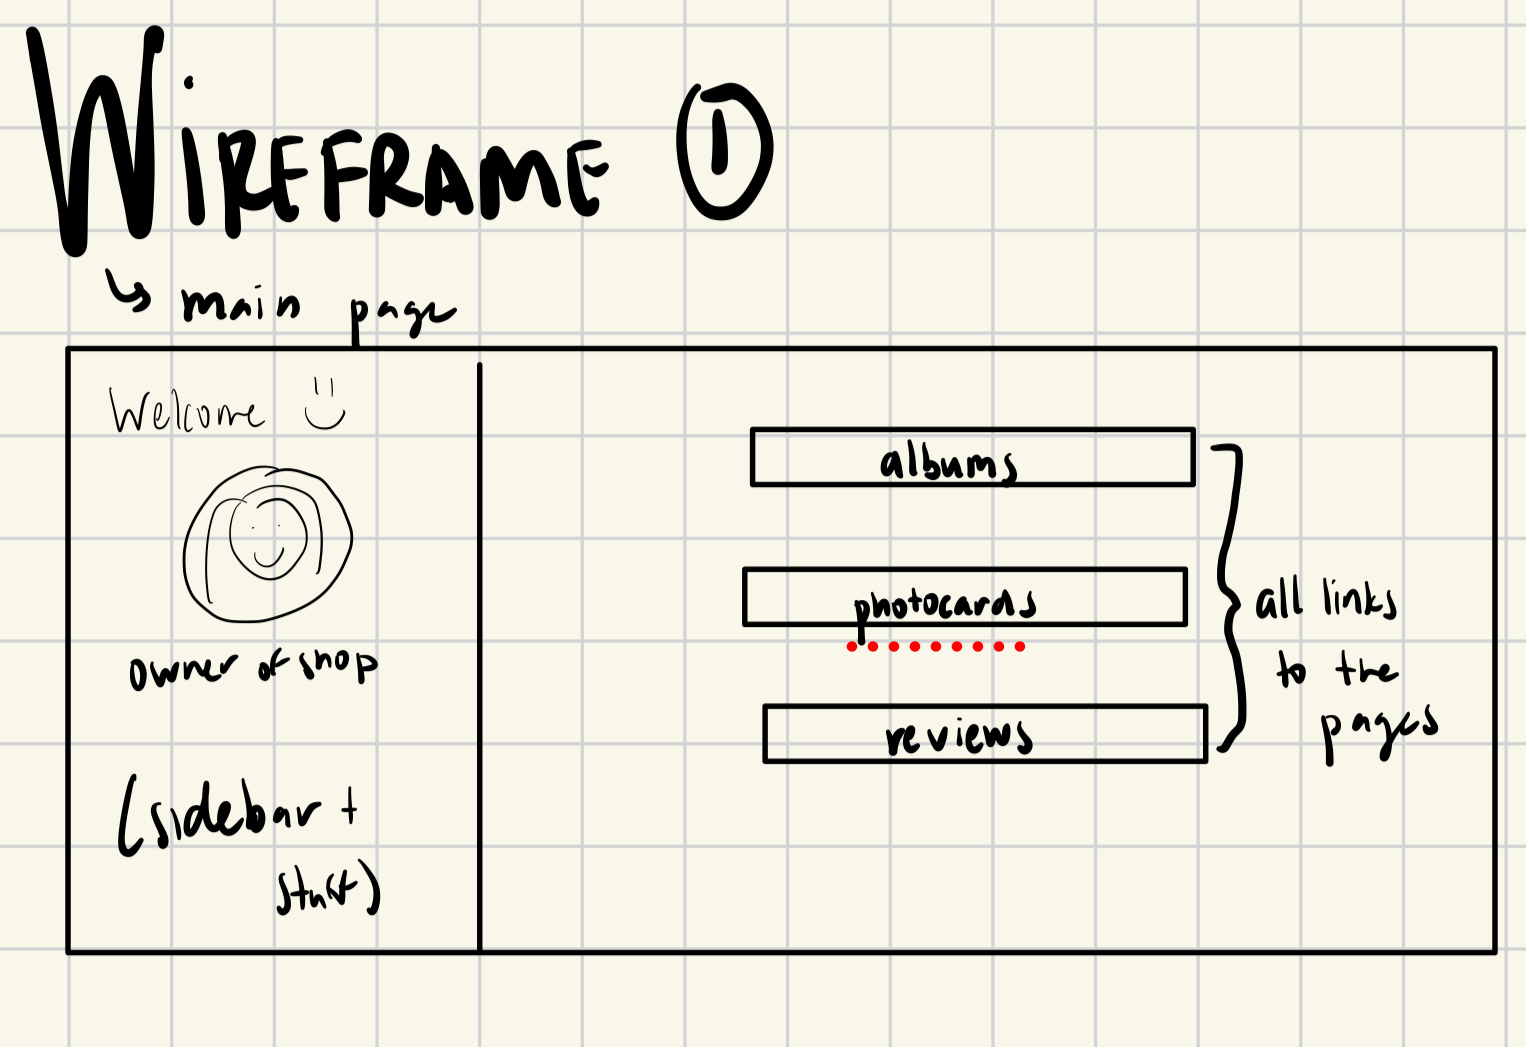 WiREFRAME ①
↳ main page
Welcome :)
owner of shop
(sidebar +
stuff)
albums
photocards
reviews
all links
to the
pages